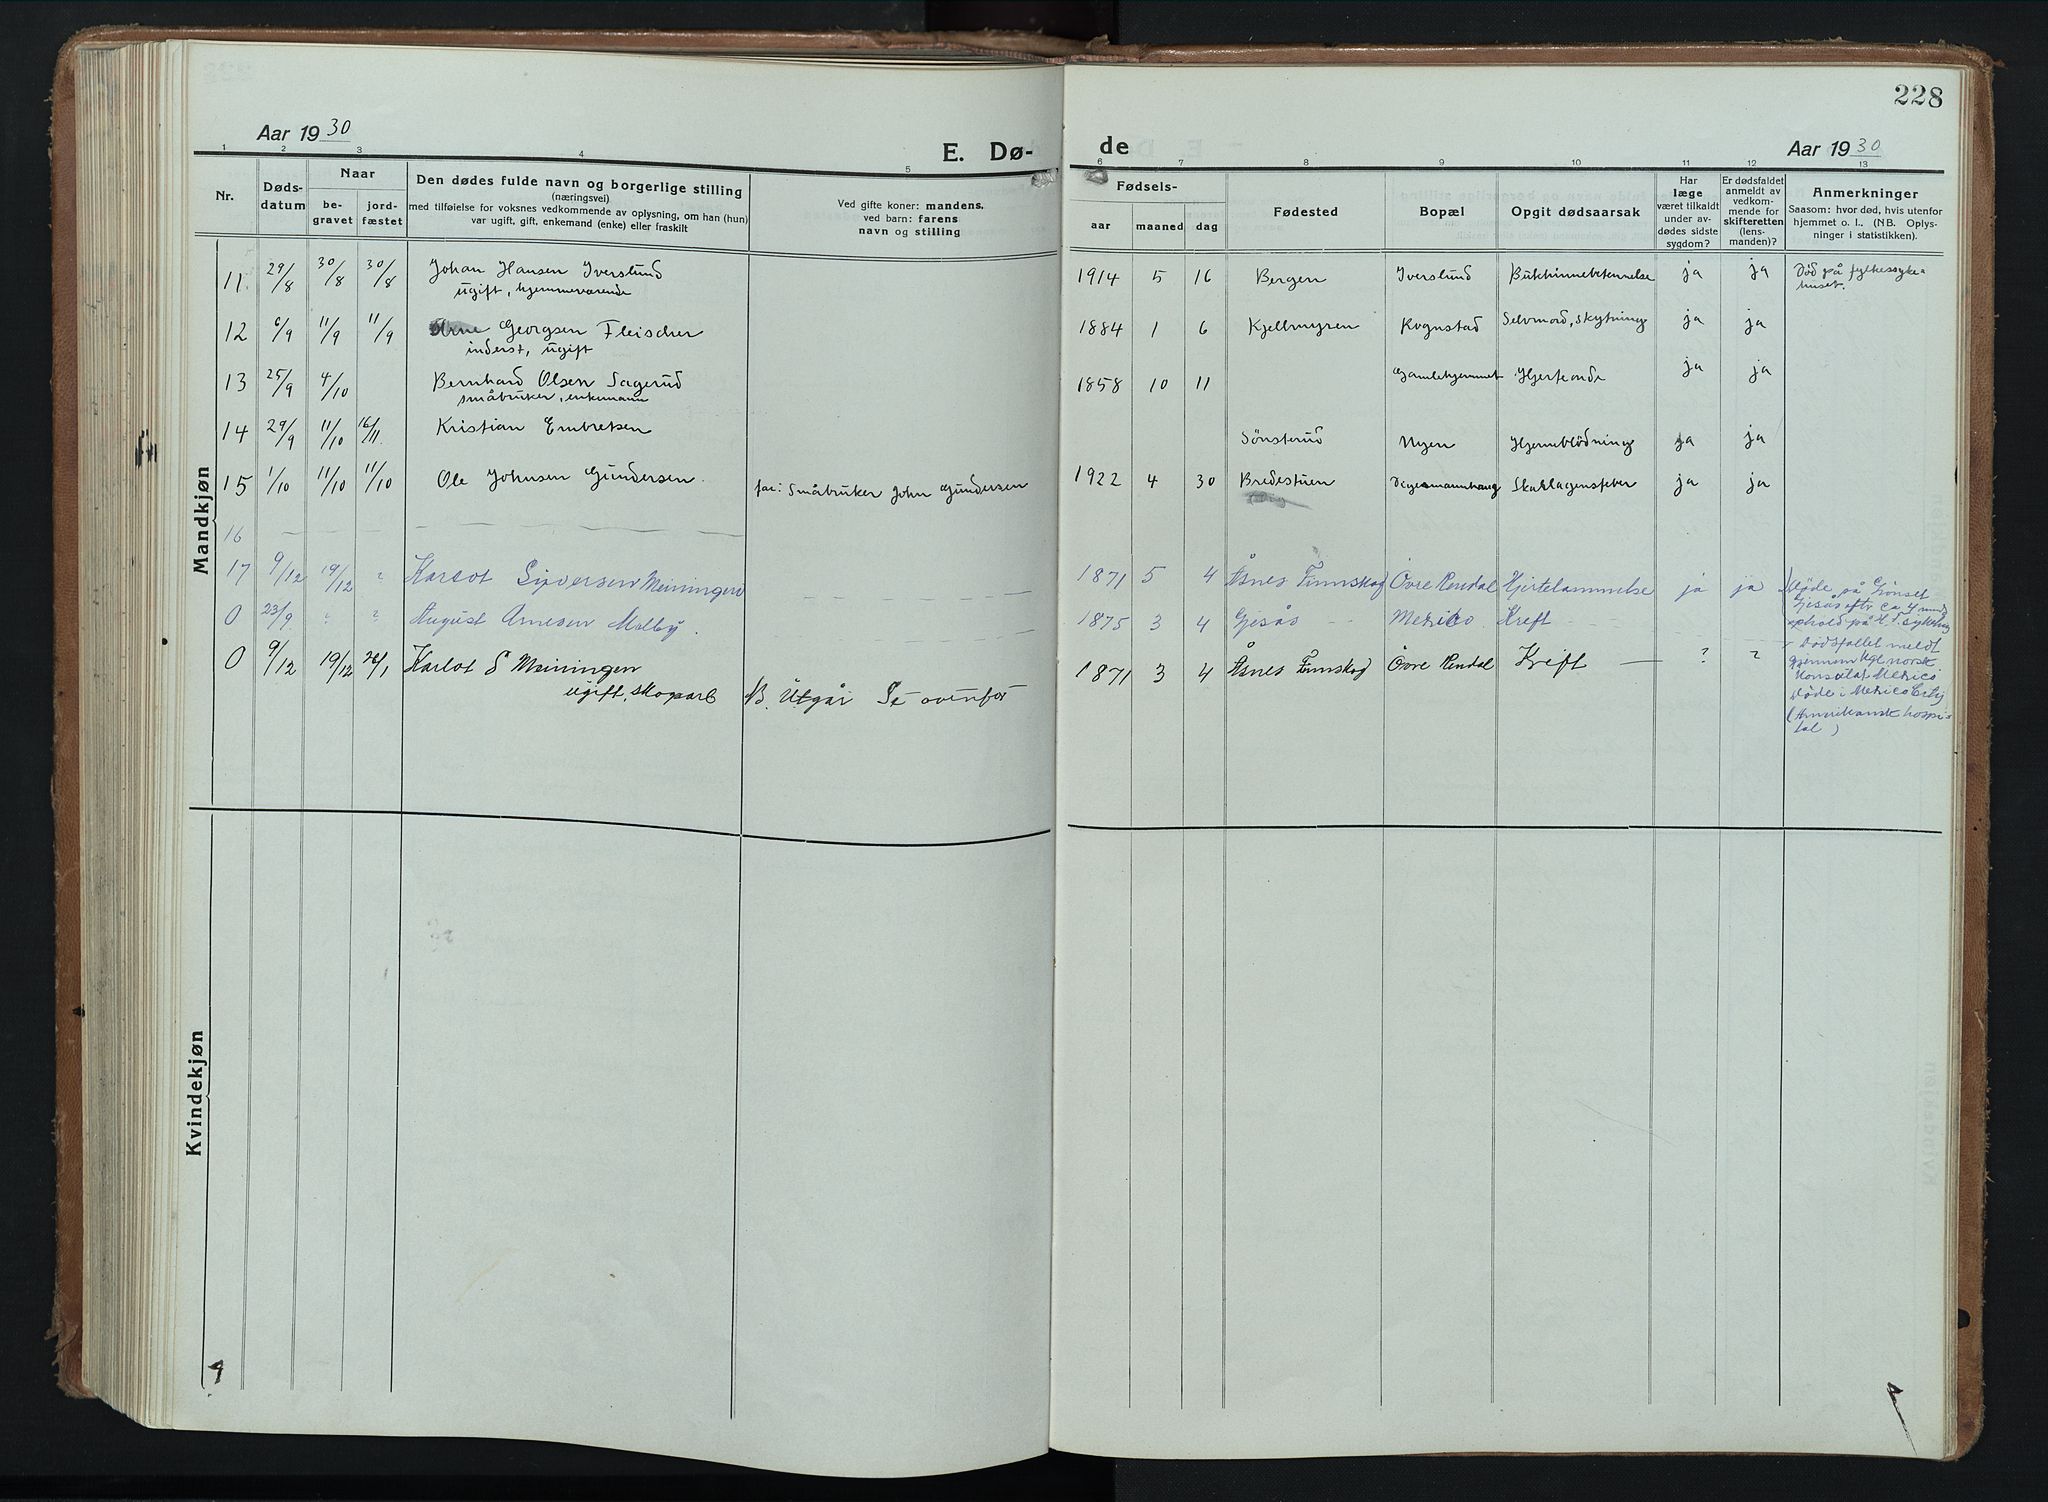 228
Aar 1930
E. Dø-
de
Aar 1930
1 2 3 4 5 6 7 8 9 10 11 12 13
Nr.
Døds-
datum
Naar
be-
gravet
jord-
fæstet
Den dødes fulde navn og borgerlige stilling
(næringsvei)
med tilføielse for voksnes vedkommende av oplysning, om han (hun)
var ugift, gift, enkemand (enke) eller fraskilt
Ved gifte koner: mandens,
ved barn: farens
navn og stilling
Fødsels-
aar maaned dag
Fødested
Bopæl
Opgit dødsaarsak
Har
læge
været tilkaldt
under av-
dødes sidste
sygdom?
Er dødsfaldet
anmeldt av
vedkom-
mende for
skifteretten
(lens-
manden)?
Anmerkninger
Saasom: hvor død, hvis utenfor
hjemmet o. l.. (NB. Oplys-
ninger i statistikken).
Mandkjøn
11 29/8 30/8 30/8 Johan Hansen Iverslund 1914 5 16 Bergen Iverslund Bukhinnebetennelse ja ja Død på fylkessyke-
ugift, hjemmeværende huset.
12 6/9 11/9 11/9 Arne Georgsen Fleischer 1884 1 6 Kjellmyren Rognstad Selvmord, skytning ja ja
inderst, ugift
13 25/9 4/10 Bernhard Olsen Sagerud 1858 10 11 Gamlehjemmet Hjerteonde ja ja
småbruker, enkemann
14 29/9 11/10 16/11. Kristian Embretsen Sønsterud Myen Hjerneblødning ja ja
15 1/10 11/10 11/10 Ole Johnsen Gundersen. far: Småbruker John Gundersen 1922 4 30 Bredestuen Skarlagensfeber ja ja
16 — — — —
17 9/12 19/12 ? Karlot Syversen Meiningen 1871 5 4 Åsnes Finnskog Øvre Rendal Hjertelammelse ja ja Døde på Grönset
Gjesås eftr ca 4 mnds
ophold på H. F. sykehus
0 23/9 ? ? August Arnesen Melby. 1875 3 4 Gjesås Mexico Kreft - Dødsfallet meldt
gjennem Kgl norsk
Konsulat Mexico
Døde i Mexico City
(Amerikansk hospi-
tal)
0 9/12 19/12 26/1 Karlot S Meiningen 1871 3 4 Åsnes Finnskog Övre Rendal Kreft — ? ?
ugift, skogsarb NB. Utgår Se ovenfor
Kvindekjøn